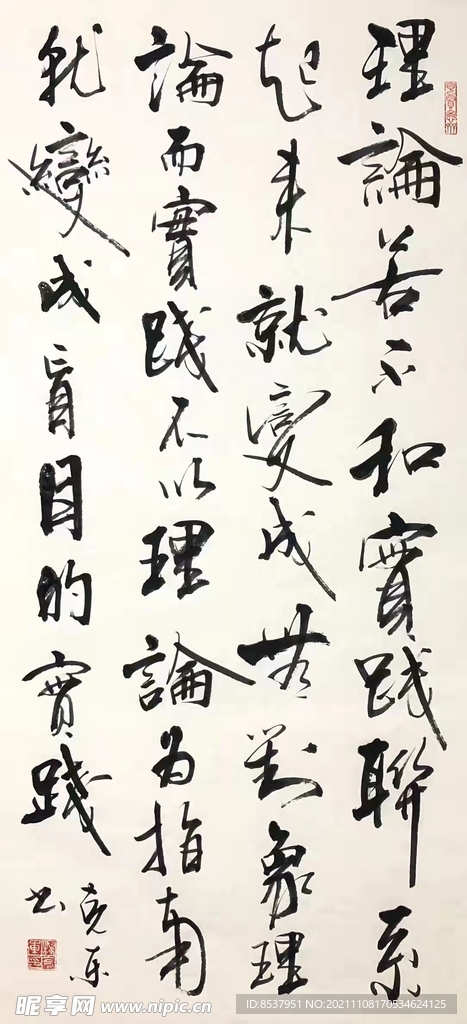 理論若不和實踐聯系
起来就變成無對象理
論而實踐不以理論为指南
就變成盲目的實踐
克东
书
昵享网 www.nipic.cn
ID:8537951 NO:20211108170534624125